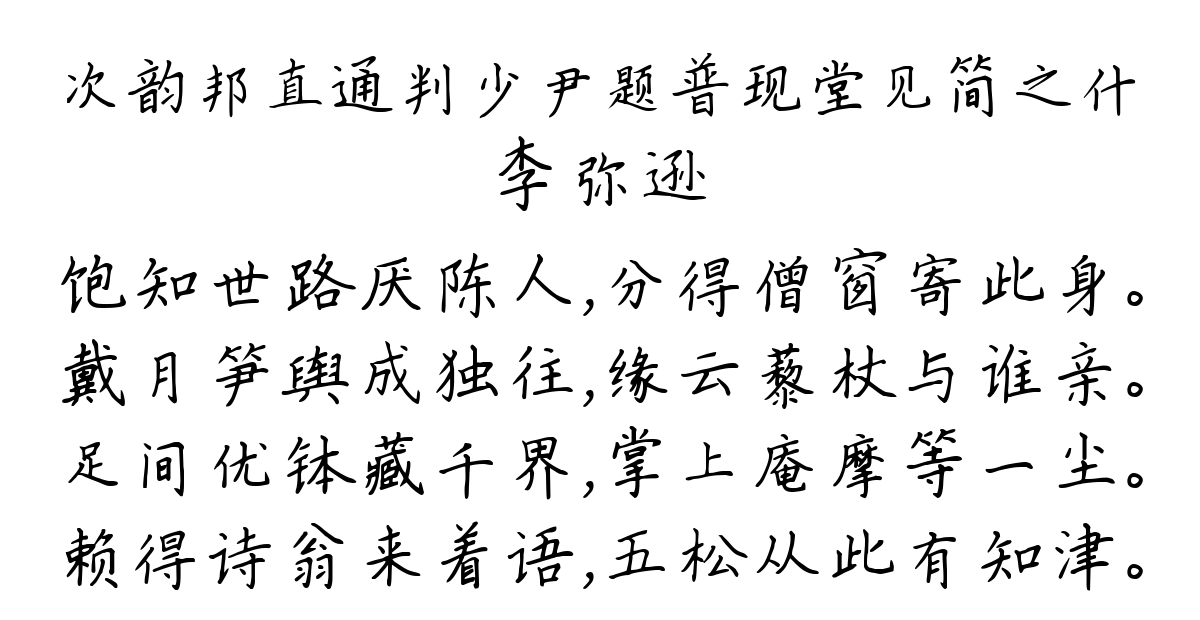 次韵邦直通判少尹题普现堂见简之什
李弥逊
饱知世路厌陈人,分得僧窗寄此身。
戴月笋舆成独往,缘云藜杖与谁亲。
足间优钵藏千界,掌上庵摩等一尘。
赖得诗翁来着语,五松从此有知津。